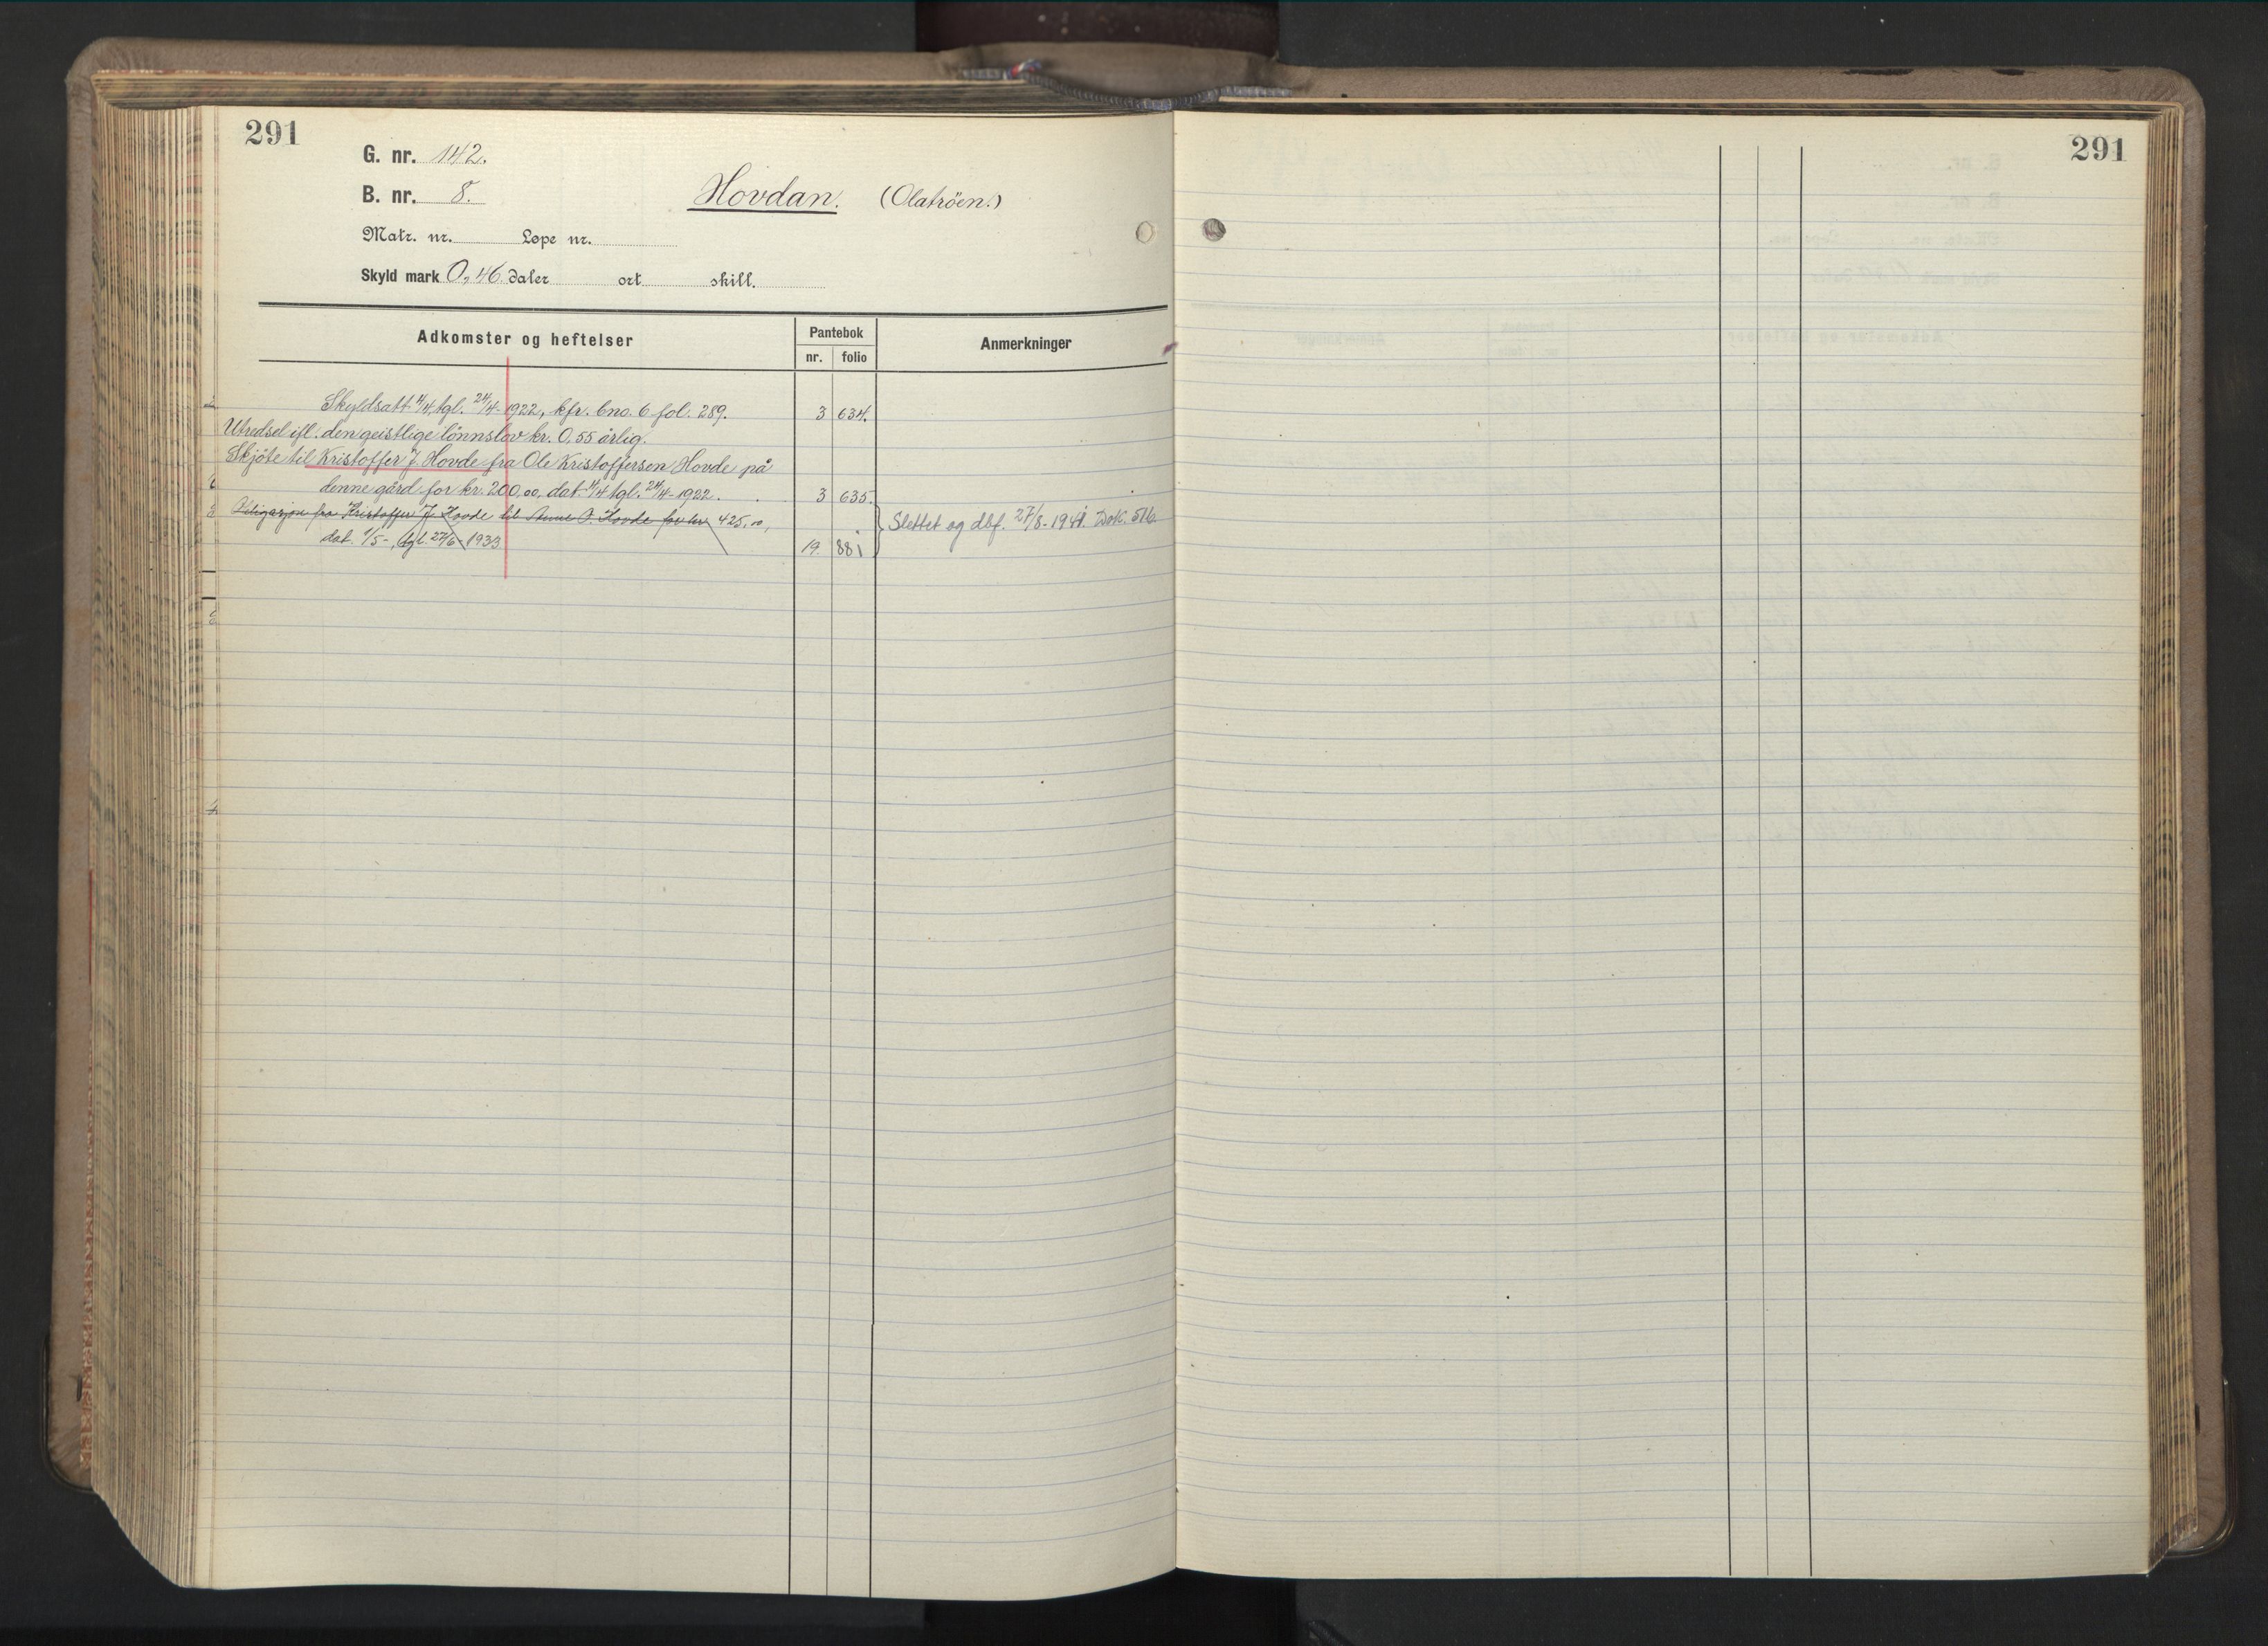 291
G. nr. 142.
B. nr. 8.
Hovdan. (Olatröen.)
Matr. nr. Løpe nr.
Skyld mark 0,46. daler ort skill.
Adkomster og heftelser
Pantebok
nr. folio
Anmerkninger
Skyldsatt 11/4 tgl. 24/4-1922, kfr. bno. 6 fol. 289. 3 634.
Utredsel ifl. den geistlige lönnslov kr. 0,55 årlig.
Skjöte til Kristoffer J. Hovde fra Ole Kristoffersen Hovde på
denne gård for kr. 200,00, dat. 11/4 tgl. 24/4-1922. 3 635.
Obligasjon fra Kristoffer J. Hovde til Anne O. Hovde for kr. 425,00,
dat. 1/5-, tgl. 27/6-1933 19. 881
Slettet og dbf. 27/8-1941. Dok. 516.
291